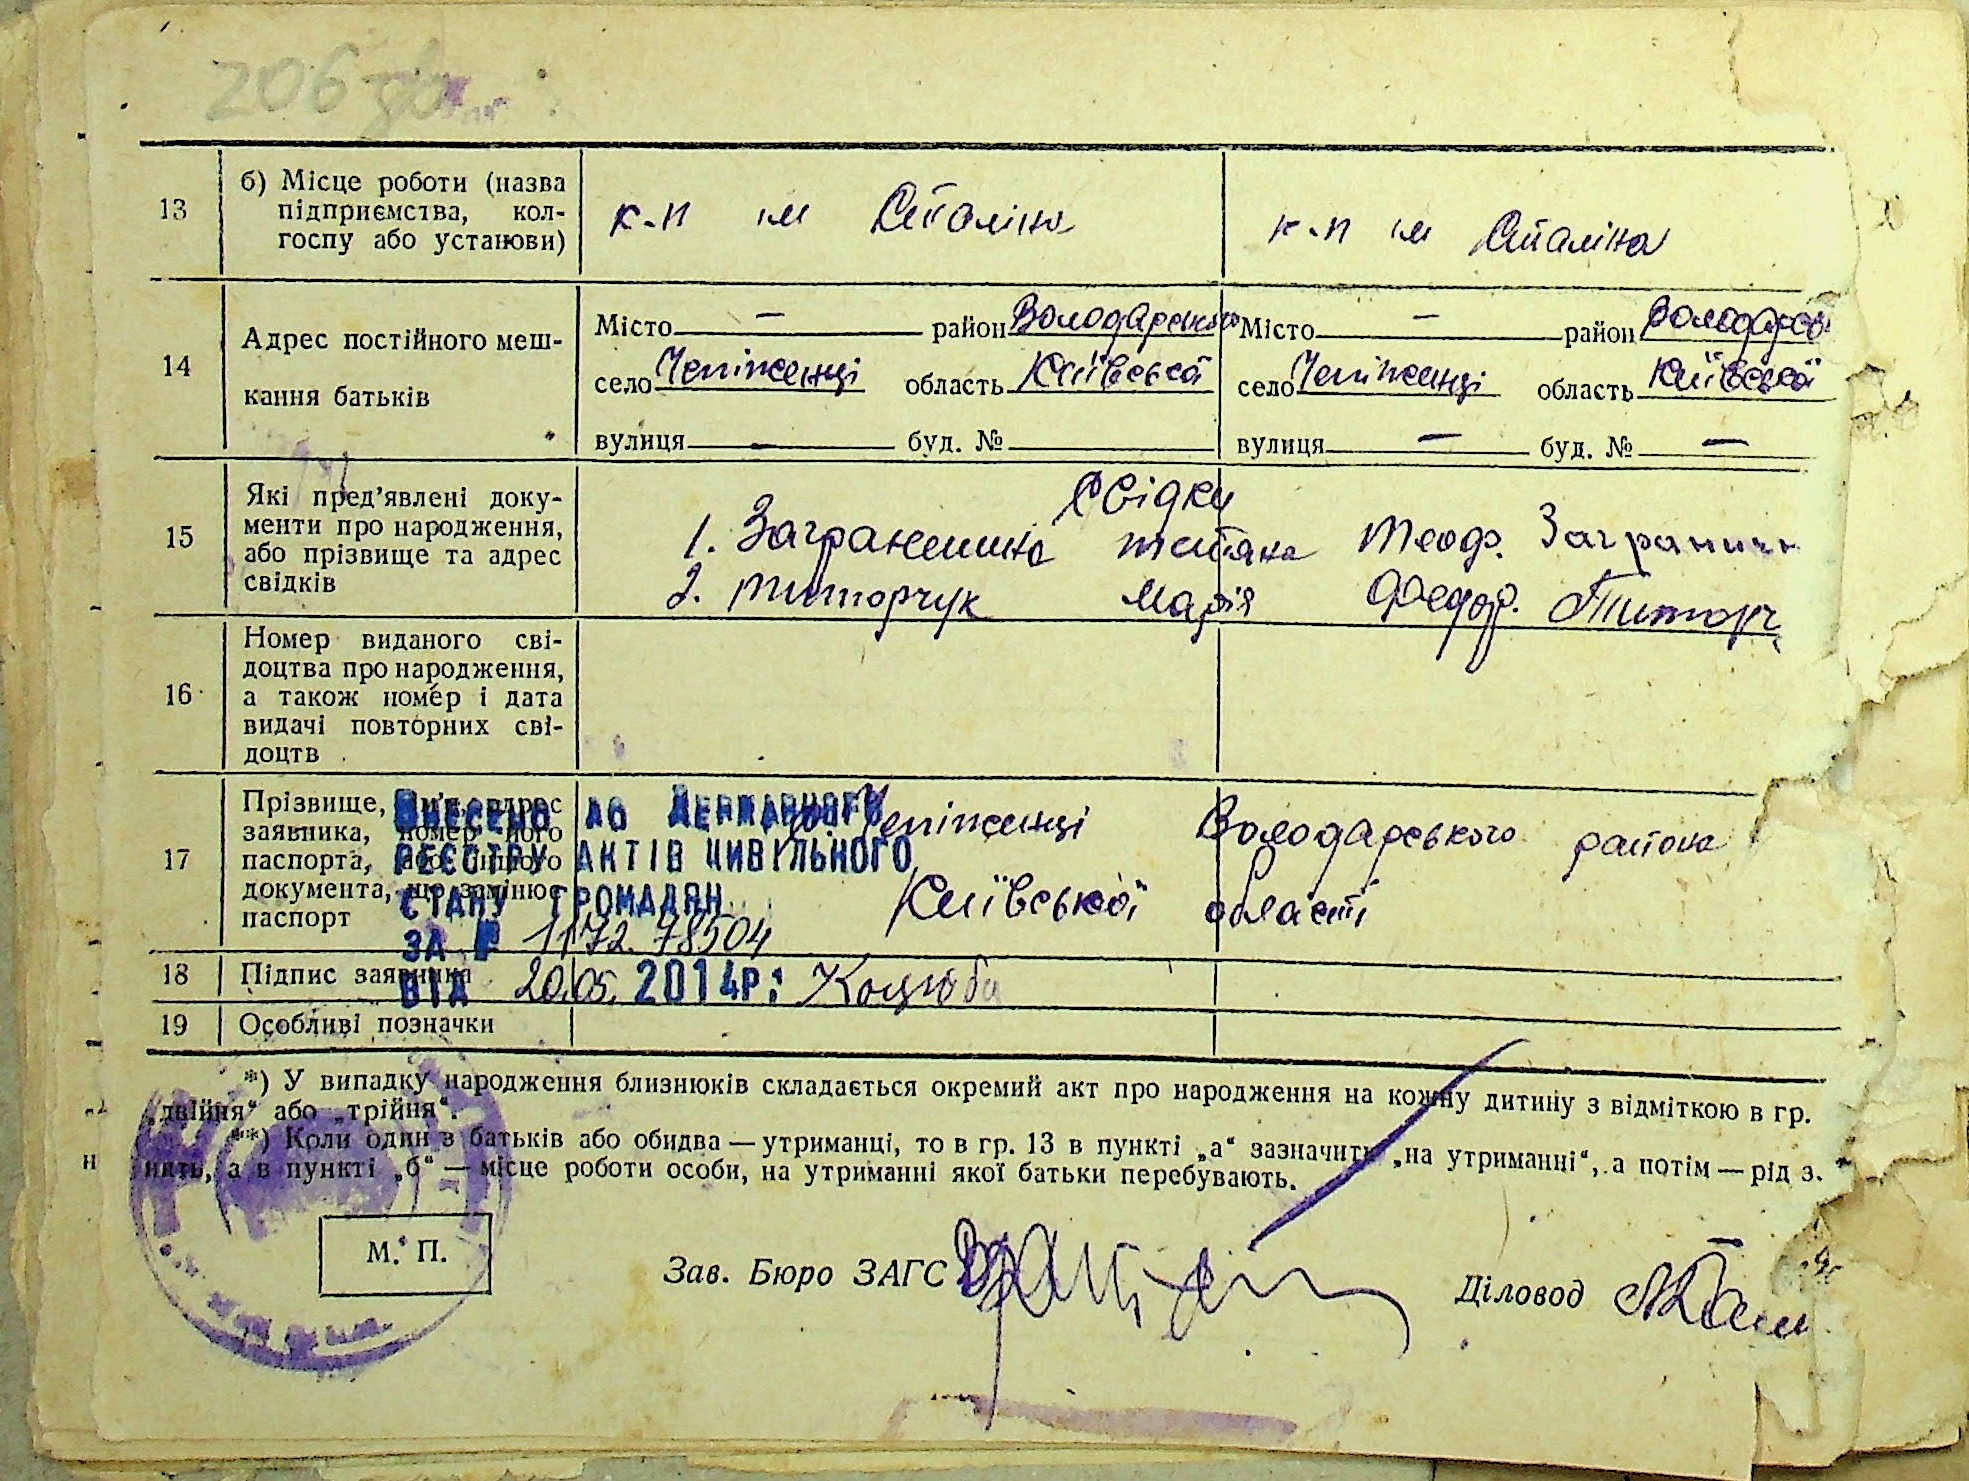 206 зв
13
б) Місце роботи (назва
підприємства, кол-
госпу або установи)
к-п ім Сталіна
к-п ім Сталіна
14
Адрес постійного меш-
кання батьків
Місто — район Володарський
село Чепіженці область Київської
вулиця — буд. №
Місто — район Володарсь
село Чепіженці область Київської
вулиця — буд. № —
15
Які пред'явлені доку-
менти про народження,
або прізвище та адрес
свідків
Свідки
1. Загранишна Тетяна Теоф. Загранични
2. Титорчук Марія Федор. Титорч
16
Номер виданого сві-
доцтва про народження,
а також номер і дата
видачі повторних сві-
доцтв
17
Прізвище, ім'я, адрес
заявника, номер його
паспорта, або іншого
документа, що замінює
паспорт
Чепіженці Володарського района
Київської області
ВНЕСЕНО ДО ДЕРЖАВНОГО
РЕЄСТРУ АКТІВ ЦИВІЛЬНОГО
СТАНУ ГРОМАДЯН
ЗА № 1172.78504
ВІД 20.05.2014р:
18
Підпис заявника
Коцюба
19
Особливі позначки
*) У випадку народження близнюків складається окремий акт про народження на кожну дитину з відміткою в гр.
„двійня“ або „трійня“.
**) Коли один з батьків або обидва — утриманці, то в гр. 13 в пункті „а“ зазначить „на утриманні“, а потім — рід з.
нять, а в пункті „б“ — місце роботи особи, на утриманні якої батьки перебувають.
М. П.
Зав. Бюро ЗАГС
Діловод